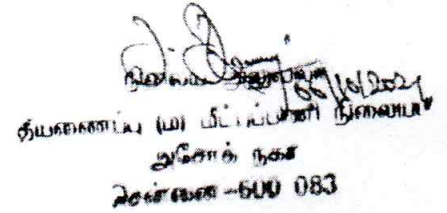 நிலைய அலுவலர்
தீயணைப்பு (ம) மீட்புப்பணி நிலையம்
அசோக் நகர்
சென்னை-600 083